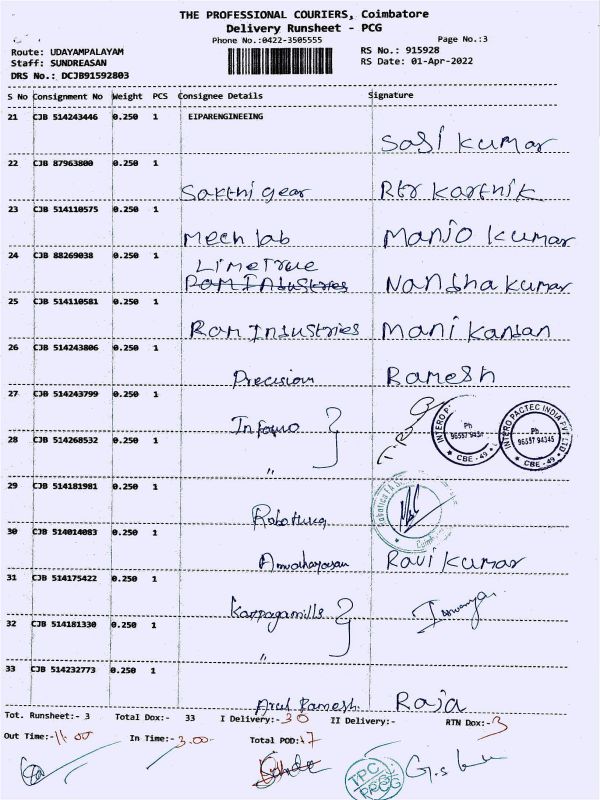 THE PROFESSIONAL COURIERS, Coimbatore
Delivery Runsheet - PCG
Phone No.:0422-3505555 Page No.:3
Route: UDAYAMPALAYAM RS No.: 915928
Staff: SUNDREASAN RS Date: 01-Apr-2022
DRS No.: DCJB91592803
S No Consignment No Weight PCS Consignee Details Signature
21 CJB 514243446 0.250 1 EIPARENGINEEING
Sasi kumar
22 CJB 87963800 0.250 1
Sakthi gear Rtr Karthik
23 CJB 514110575 0.250 1
Mech lab Manjo kumar
24 CJB 88269038 0.250 1 Lime True
Nandha kumar
25 CJB 514110581 0.250 1
Ram Industries Mani kandan
26 CJB 514243806 0.250 1
Precision Ramesh
27 CJB 514243799 0.250 1
INTERO P Ph 96557 9434 CBE - 49
INTERO PACTEC INDIA PVT LTD Ph 96557 94345 CBE - 49
28 CJB 514268532 0.250 1
"
29 CJB 514181981 0.250 1
30 CJB 514014083 0.250 1
Ravi kumar
31 CJB 514175422 0.250 1
Karpagamills
32 CJB 514181330 0.250 1
"
33 CJB 514232773 0.250 1
Arul Ramesh Raja
Tot. Runsheet:- 3 Total Dox:- 33 I Delivery:- 30 II Delivery:- RTN Dox:- 3
Out Time:- 11.00 In Time:- 3.00 Total POD:- 7
TPC
PCG